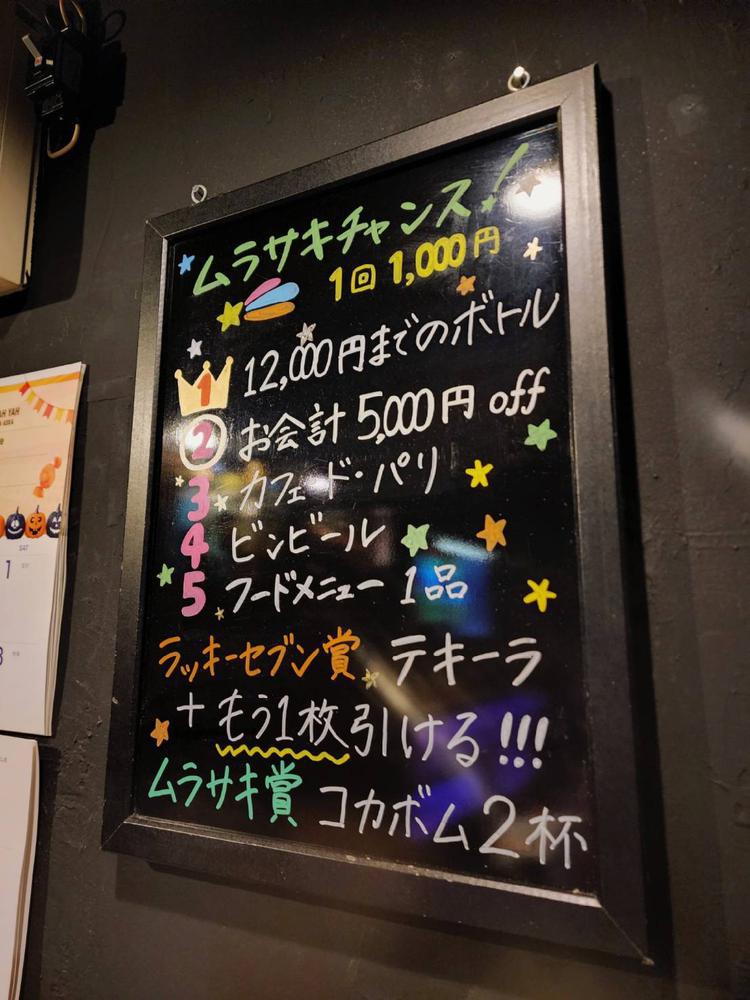 ムラサキチャンス！
1回 1,000円
1 12,000円までのボトル
2 お会計 5,000円 off
3 カフェ・ド・パリ
4 ビンビール
5 フードメニュー 1品
ラッキーセブン賞 テキーラ
+ もう1枚引ける!!!
ムラサキ賞 コカボム2杯
AH YAH
SAT
1